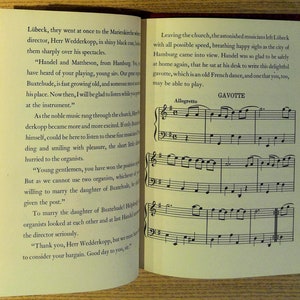 Lübeck, they went at once to the Marienkirche where
director, Herr Wedderkopp, in shiny black coat, looked
them sharply over his spectacles.
"Handel and Mattheson, from Hamburg? Yes,
have heard of your playing, young sirs. Our great
Buxtehude, is fast growing old, and someone must
his place. Now then, I will be glad to listen while you
at the instrument."
As the noble music rang through the church, Herr
derkopp became more and more excited. If
himself, could be here to listen to these four
ding and smiling with pleasure, the short little
hurried to the organists.
"Young gentlemen, you have won the position
But as we cannot use two organists, whichever
willing to marry the daughter of Buxtehude, he
given the post."
To marry the daughter of Buxtehude! Helpless
organists looked at each other and at last Handel
the director seriously.
"Thank you, Herr Wedderkopp, but we must
to consider your bargain. Good day to you, sir."
Leaving the church, the astonished musicians left Lübeck
with all possible speed, breathing happy sighs as the city of
Hamburg came into view. Handel was so glad to be safely
at home again, that he sat at his desk to write this delightful
gavotte, which is an old French dance, and one that you, too,
may be able to play.
GAVOTTE
Allegretto